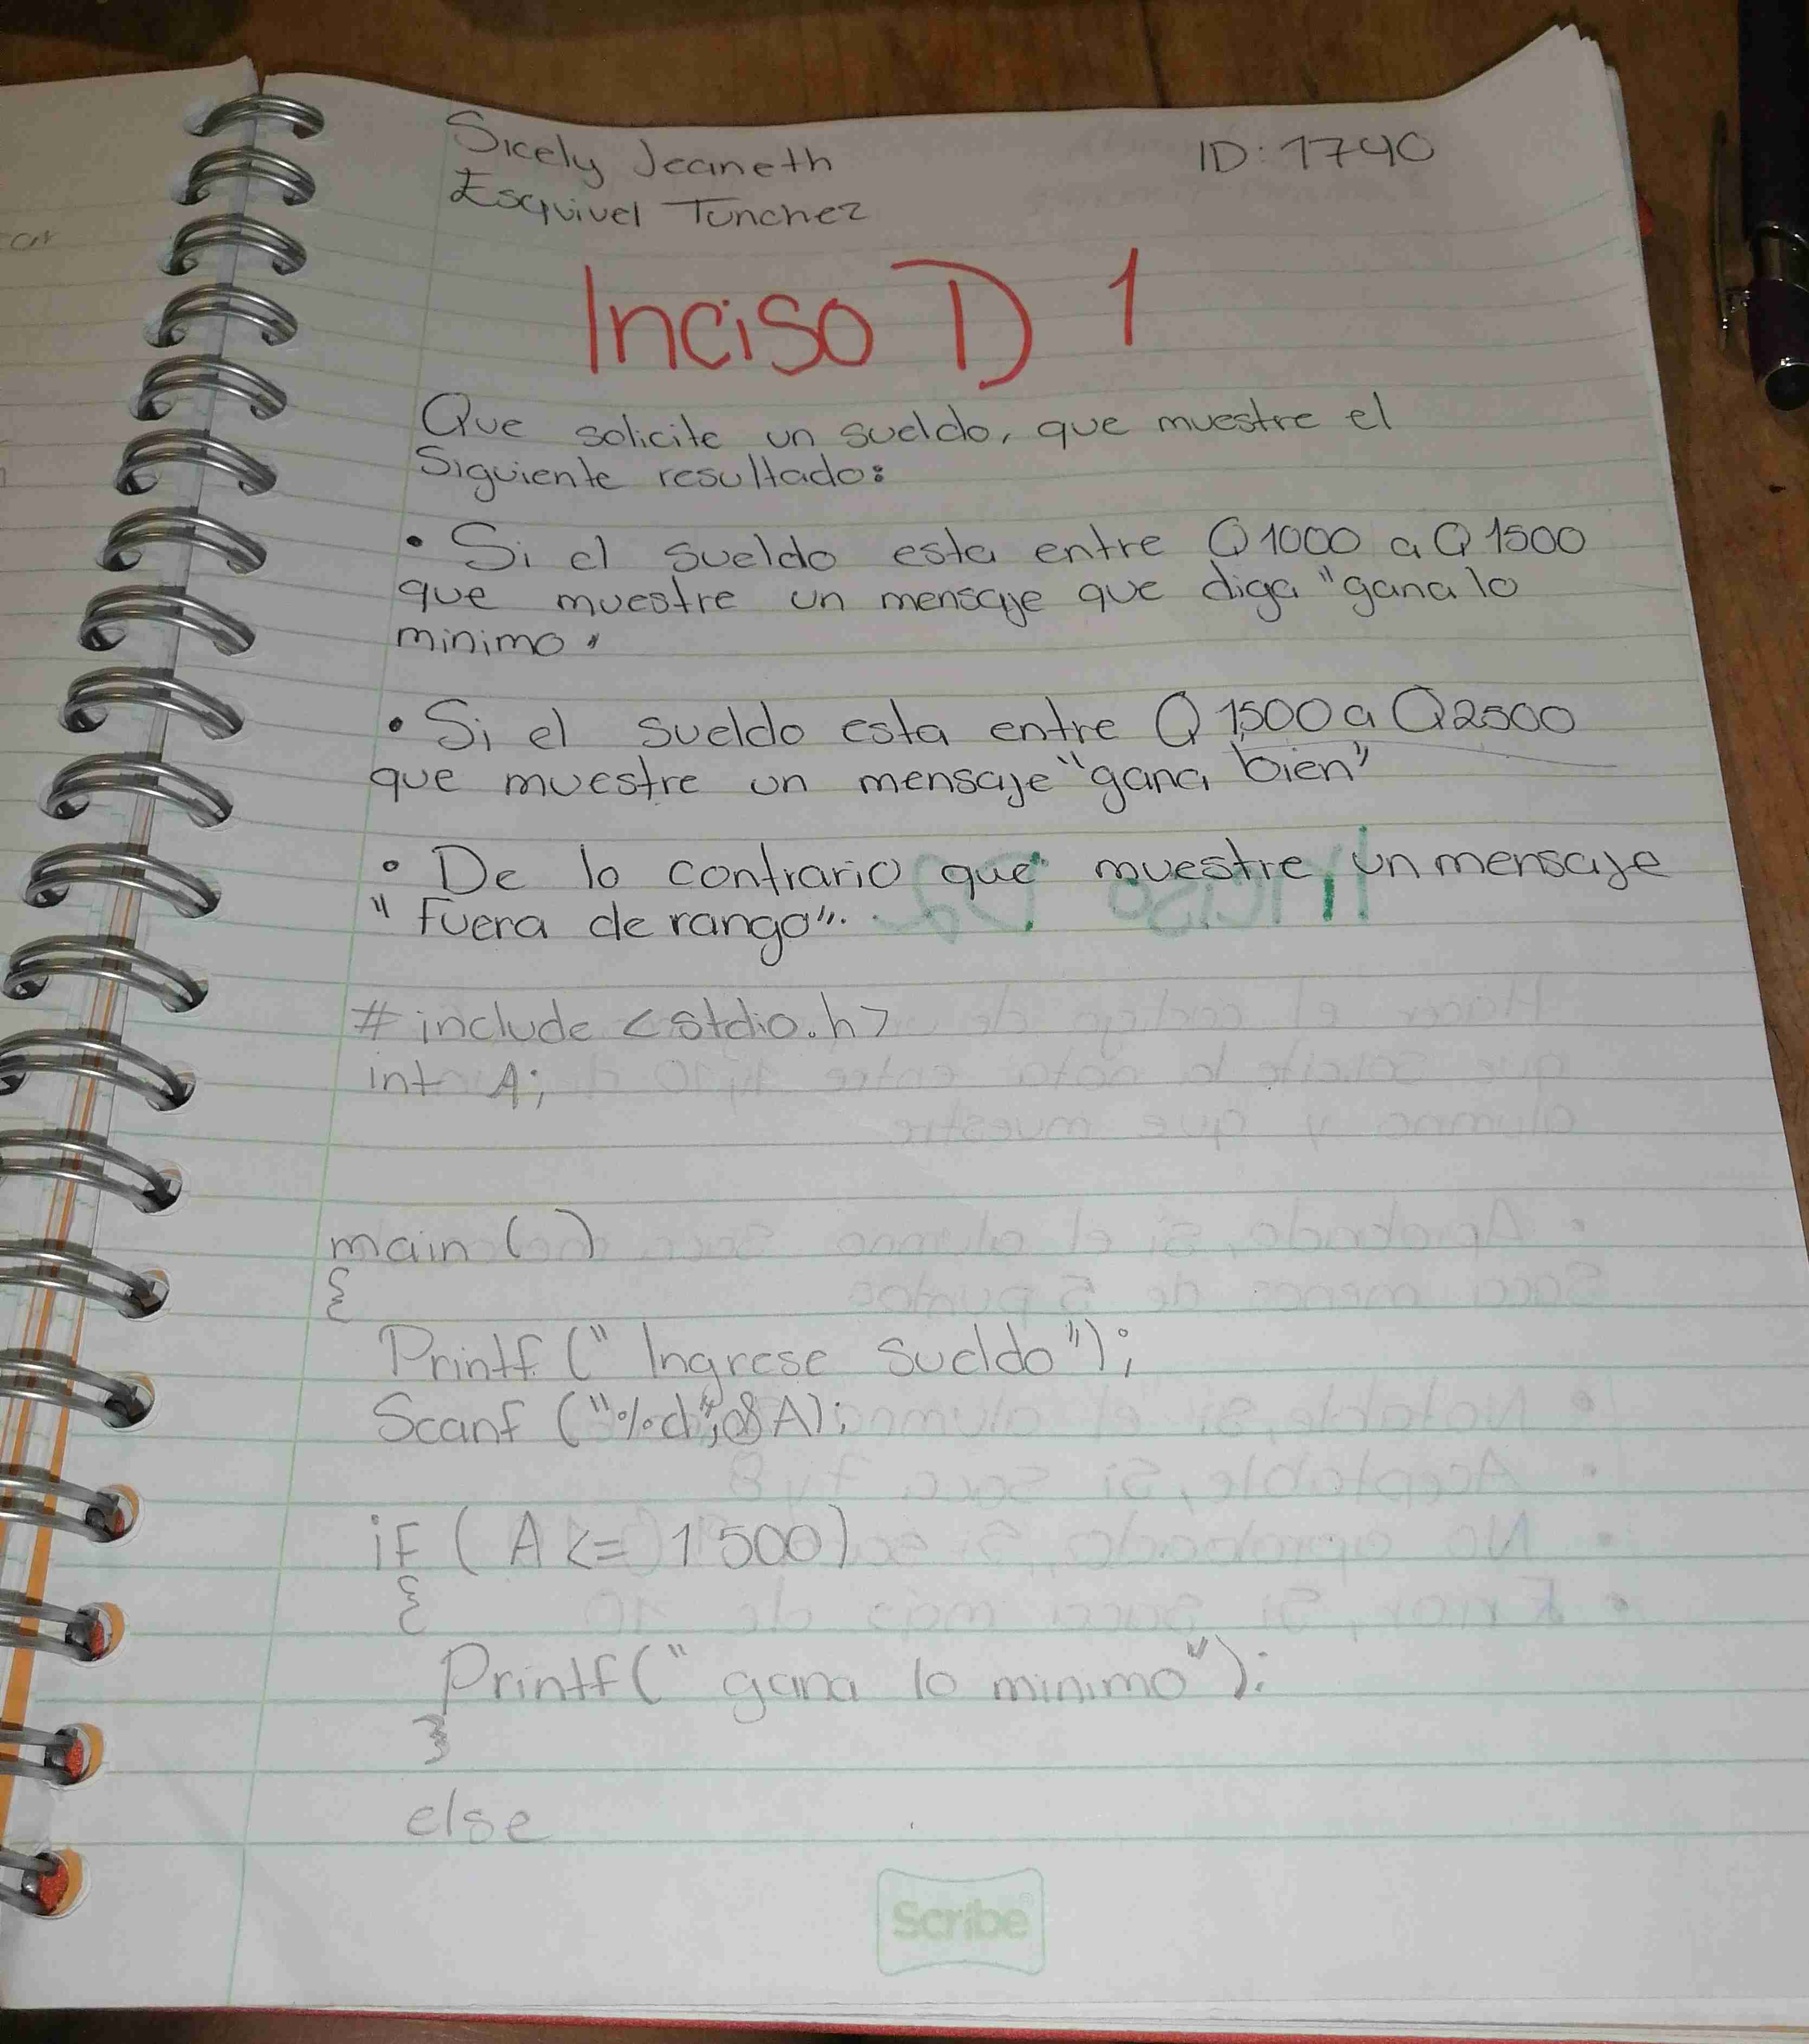 Sicely Jeaneth
ID: 1740
Esquivel Tunchez
Inciso D 1
Que solicite un sueldo, que muestre el
Siguiente resultado:
• Si el sueldo esta entre Q1000 a Q1500
que muestre un mensaje que diga "gana lo
minimo"
• Si el sueldo esta entre Q1500 a Q2500
que muestre un mensaje "gana bien"
• De lo contrario que muestre un mensaje
"Fuera de rango".
# include <stdio.h>
int A;
main ( )
{
Printf ("Ingrese Sueldo");
Scanf ("%d",&A);
if (A <= 1500)
{
Printf(" gana lo minimo");
}
else
Scribe